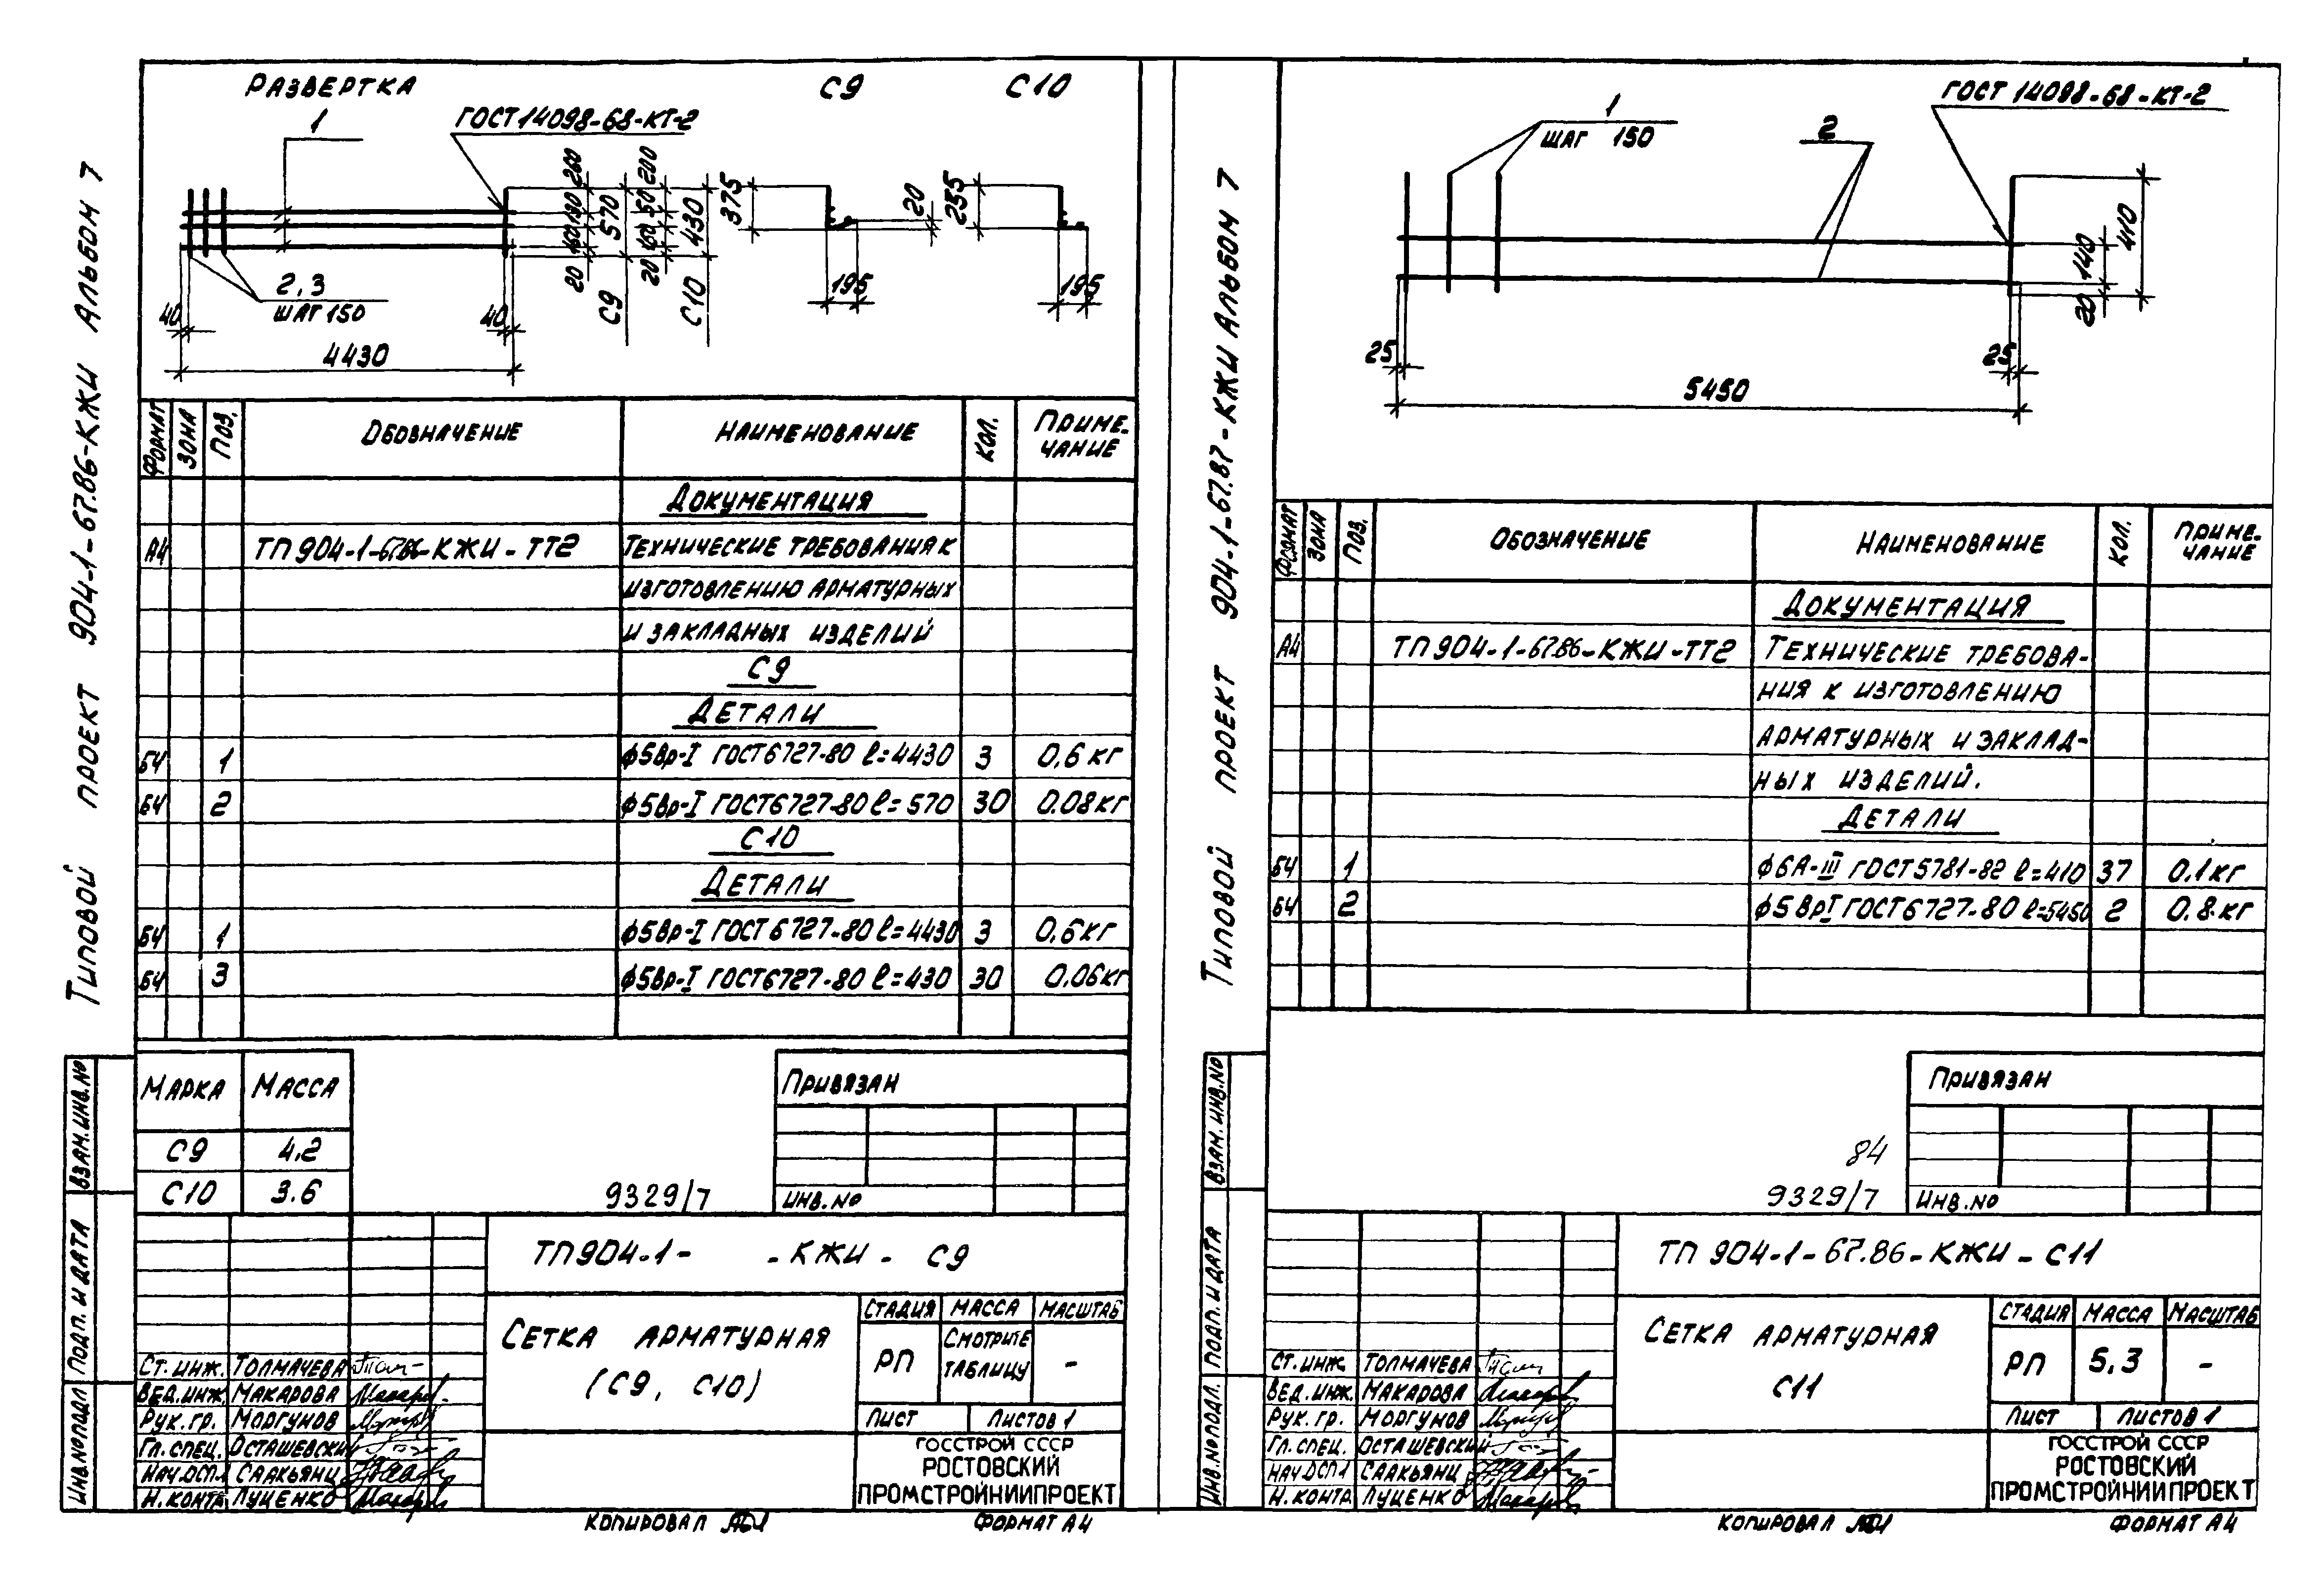 Типовой проект 904-1-67.86-КЖИ Альбом 7
Развертка
С9
С10
1
ГОСТ 14098-68-КТ-2
2,3
шаг 150
40
40
4430
20 160 130 260
570
С9
20 160 50 200
430
С10
375
20
195
255
195
Формат Зона Поз. Обозначение Наименование Кол. Приме-
чание
Документация
А4 ТП 904-1-67.86-КЖИ-ТТ2 Технические требования к
изготовлению арматурных
и закладных изделий
С9
Детали
БЧ 1 ф5Вр-I ГОСТ 6727-80 ℓ=4430 3 0,6 кг
БЧ 2 ф5Вр-I ГОСТ 6727-80 ℓ=570 30 0.08 кг
С10
Детали
БЧ 1 ф5Вр-I ГОСТ 6727-80 ℓ=4430 3 0,6 кг
БЧ 3 ф5Вр-I ГОСТ 6727-80 ℓ=430 30 0,06 кг
Марка Масса
С9 4.2
С10 3.6
9329/7
Привязан
Инв.№
Взам.инв.№
Подп. и дата
Инв.№ подл
ТП 904-1- -КЖИ- С9
Сетка арматурная
(С9, С10)
Стадия Масса Масштаб
РП Смотрите
таблицу -
Лист Листов 1
ГОССТРОЙ СССР
РОСТОВСКИЙ
ПРОМСТРОЙНИИПРОЕКТ
Ст.инж. Толмачева
Вед.инж. Макарова
Рук.гр. Моргунов
Гл.спец. Осташевский
Нач.ОСП1 Саакьянц
Н.конт. Луценко
Копировал
Формат А4
Типовой проект 904-1-67.87-КЖИ Альбом 7
1
шаг 150
2
ГОСТ 14098-68-КТ-2
410
140
20
25
25
5450
Формат Зона Поз. Обозначение Наименование Кол. Приме-
чание
Документация
А4 ТП 904-1-67.86-КЖИ-ТТ2 Технические требова-
ния к изготовлению
арматурных и заклад-
ных изделий.
Детали
БЧ 1 ф6А-III ГОСТ 5781-82 ℓ=410 37 0.1 кг
БЧ 2 ф5ВрI ГОСТ 6727-80 ℓ=5450 2 0.8 кг
84
9329/7
Привязан
Инв.№
Взам.инв.№
Подп. и дата
Инв.№ подл.
ТП 904-1-67.86-КЖИ-С11
Сетка арматурная
С11
Стадия Масса Масштаб
РП 5,3 -
Лист Листов 1
ГОССТРОЙ СССР
РОСТОВСКИЙ
ПРОМСТРОЙНИИПРОЕКТ
Ст.инж. Толмачева
Вед.инж. Макарова
Рук.гр. Моргунов
Гл.спец. Осташевский
Нач.ОСП1 Саакьянц
Н.конт. Луценко
Копировал
Формат А4